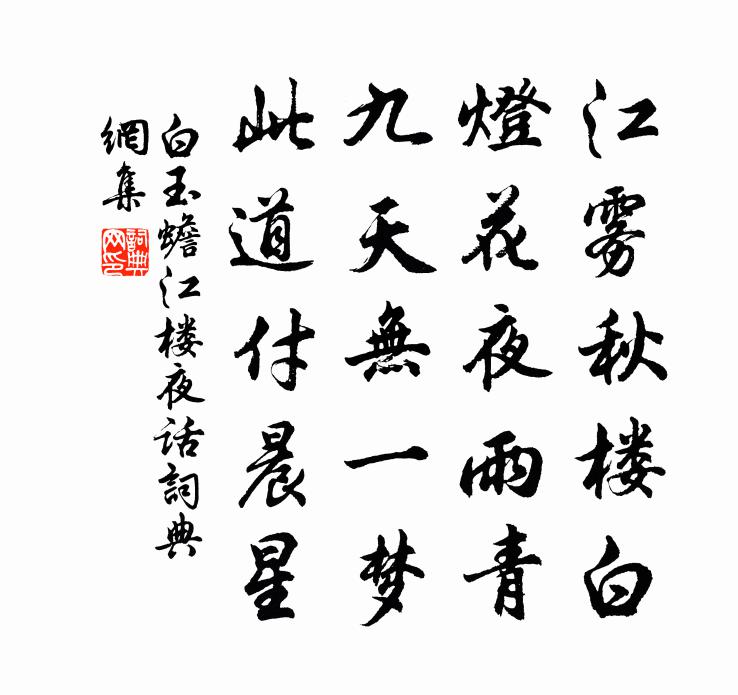 江雾秋楼白
燈花夜雨青
九天無一梦
此道付晨星
白玉蟾江楼夜话詞典
網集
詞典
网印